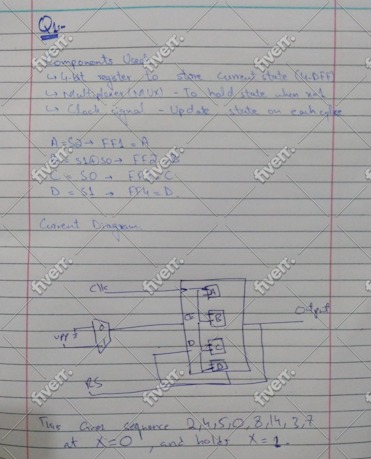 Q1:-
Components Used
↳ 4-bit register to store current state (4-DFF)
↳ Multiplexer (MUX) - To hold state when x=1
↳ Clock signal - Update state on each
A = S2 → FF1 = A
S1⊕S0 → FF2
C = S0 → C
D = S1 → FF4 = D
Current Diagram.
Clk
A
B
C
D
Output
RS
This Gives sequence 2,4,5,0,8,14,3,7
at X=0, and holds X=1.
fiverr.
fiverr.
fiverr.
fiverr.
fiverr.
fiverr.
fiverr.
fiverr.
fiverr.
fiverr.
fiverr.
fiverr.